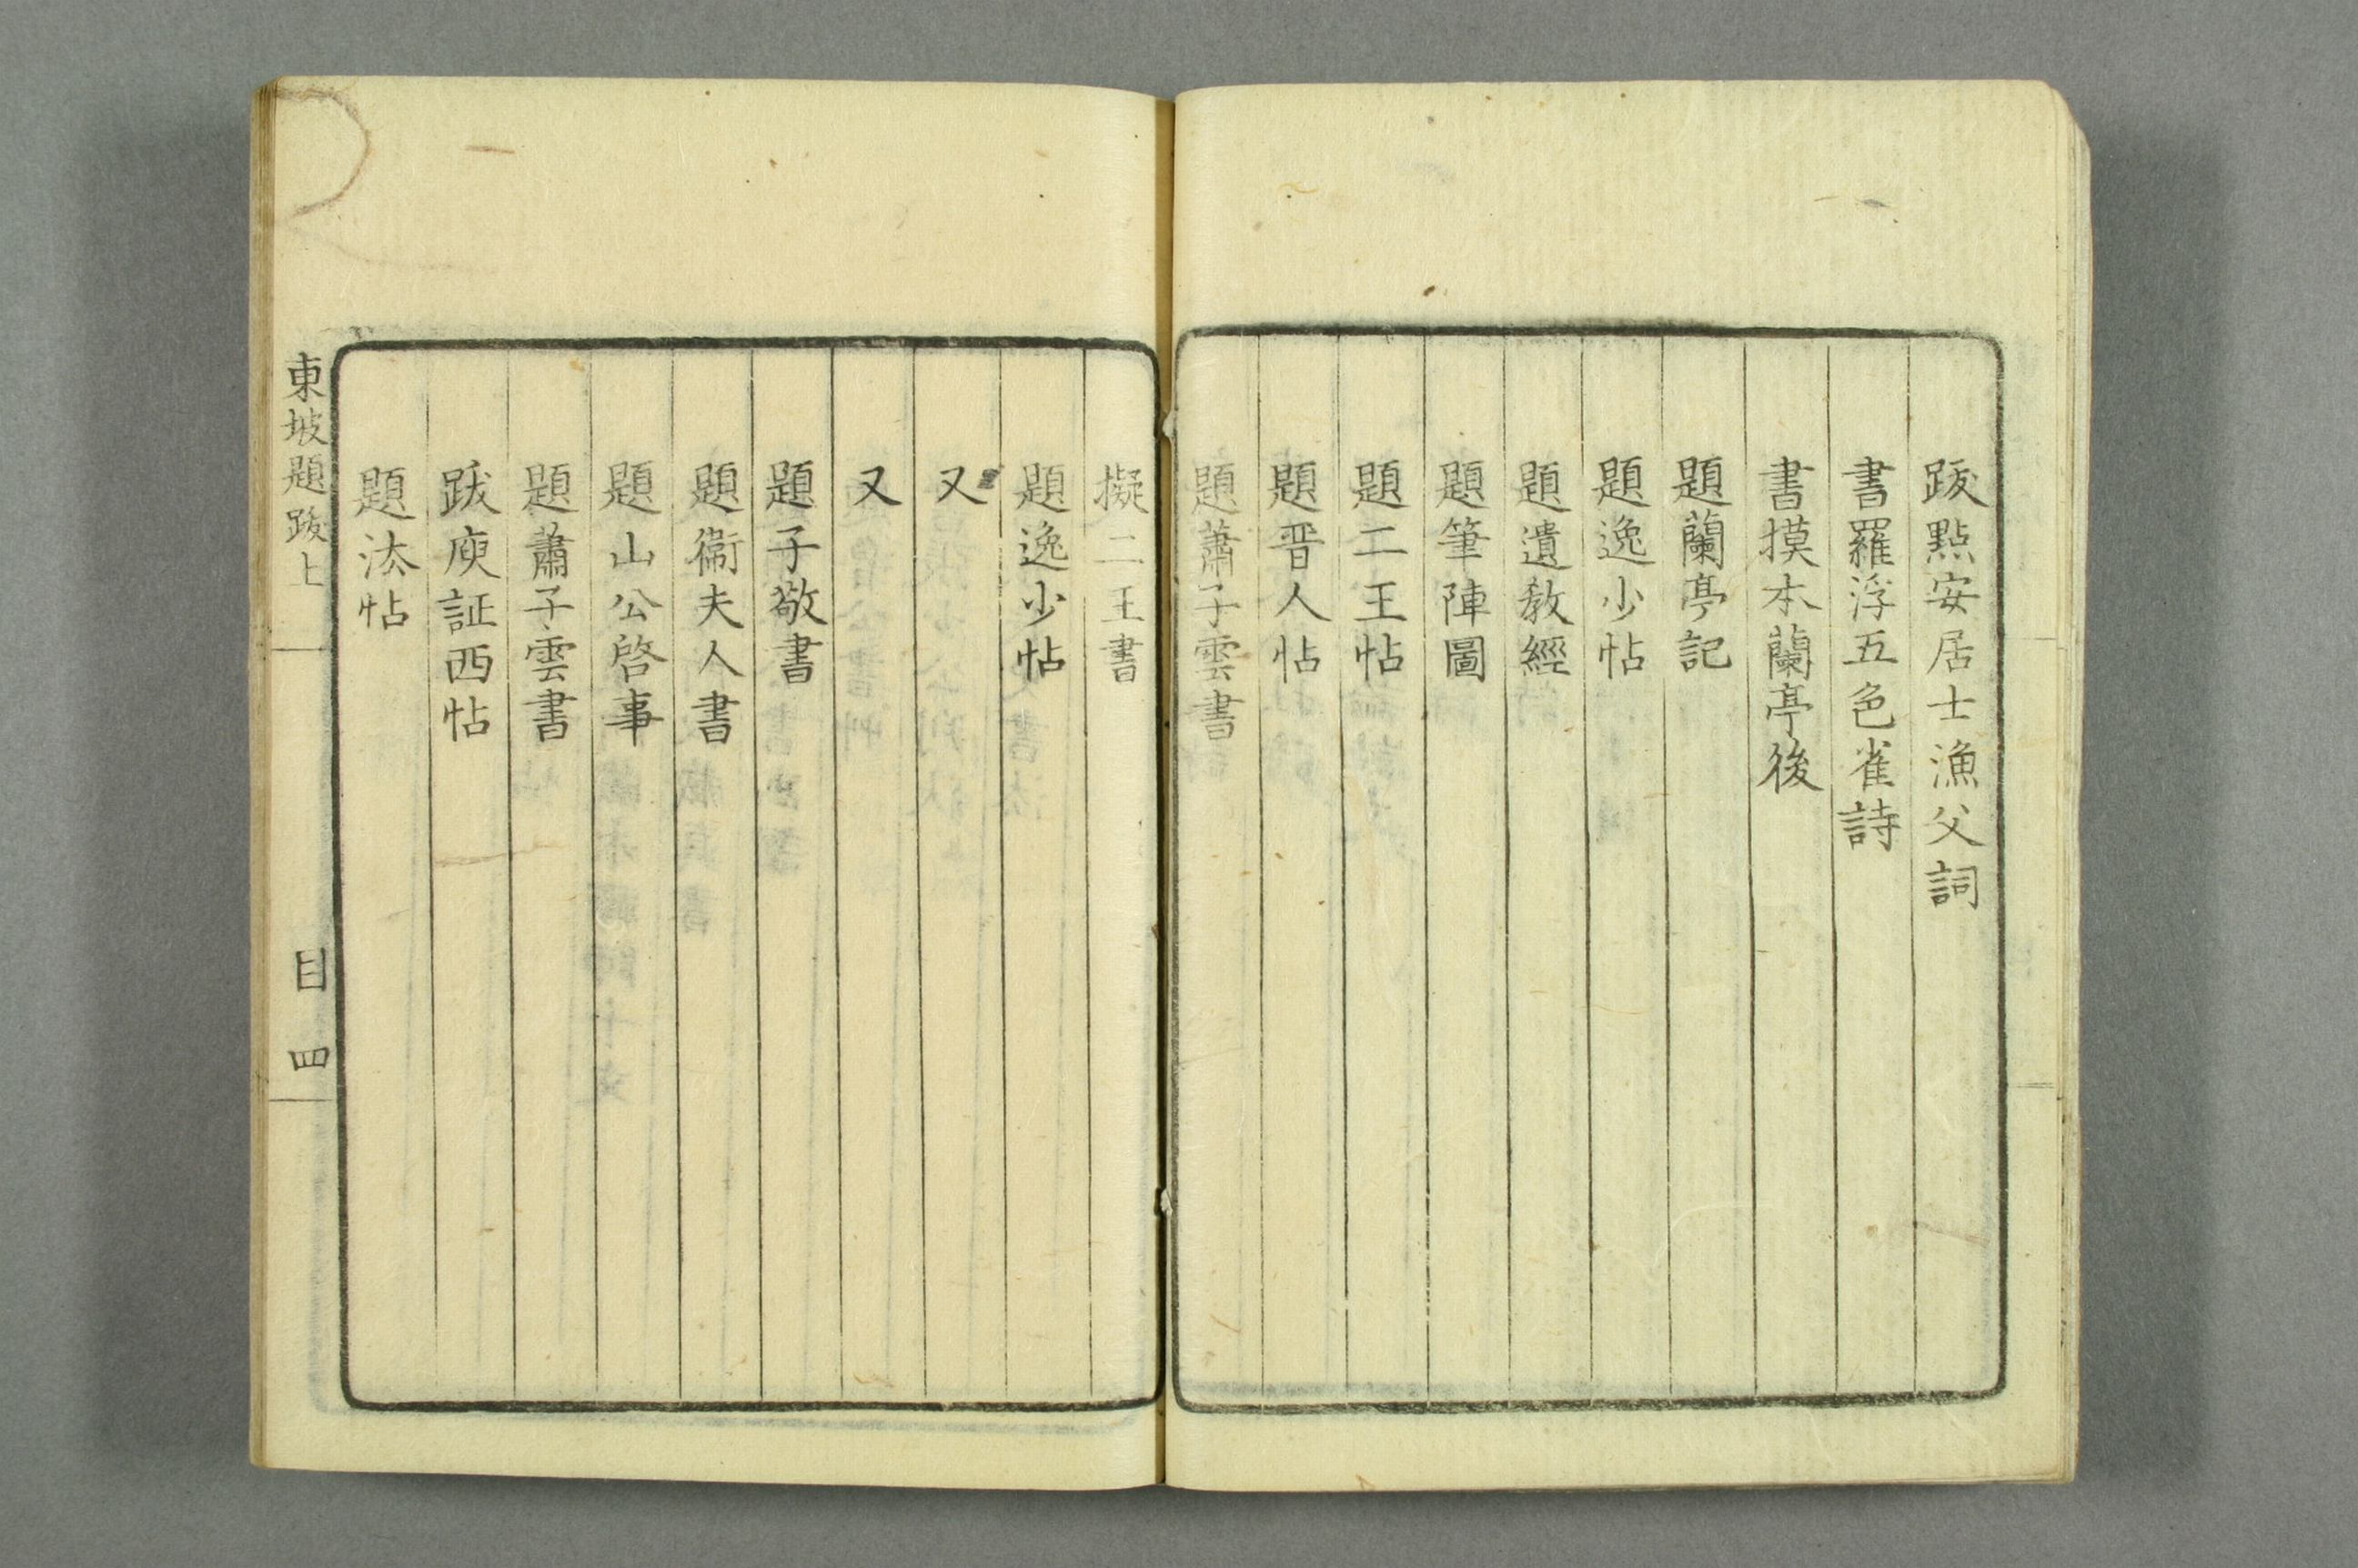 跋黠安居士漁父詞
書羅浮五色雀詩
書摸本蘭亭後
題蘭亭記
題逸少帖
題遺教經
題筆陣圖
題二王帖
題晋人帖
題蕭子雲書
擬二王書
題逸少帖
又
又
題子敬書
題衞夫人書
題山公啓事
題蕭子雲書
跋庾証西帖
題法帖
東坡題跋上
目四